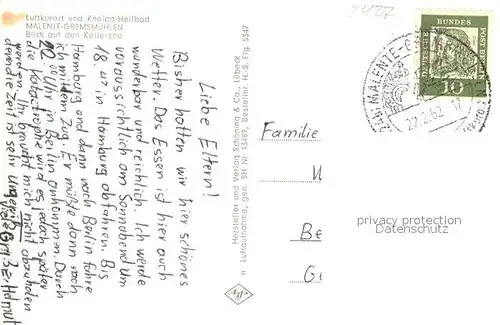 2427
Luftkurort und Kneipp-Heilbad
MALENTE-GREMSMÜHLEN
Blick auf den Kellersee
Liebe Eltern!
Bisher hatten wir hier schönes
Wetter. Das Essen ist hier auch
wunderbar und reichlich. Ich werde
voraussichtlich am Sonnabend um
18 in Hamburg abfahren. Bis
Hamburg und dann nach Berlin fahre
ich mit dem Zug. Er müßte dann nach
Uhr in Berlin ankommen. Durch
die Katastrophe wird es jedoch später
werden. Ihr braucht mich nicht abzuholen
denn die Zeit ist sehr
Helmut
Hersteller und Verlag Schöning & Co., Lübeck
Luftaufnahme, gen. SH Nr. Bestellnr. H.S. Flg. 5347
DEUTSCHE BUNDESPOST BERLIN
10
MALENTE-G
27.2.62.17
Familie
W
Be
Ge
privacy protection
Datenschutz